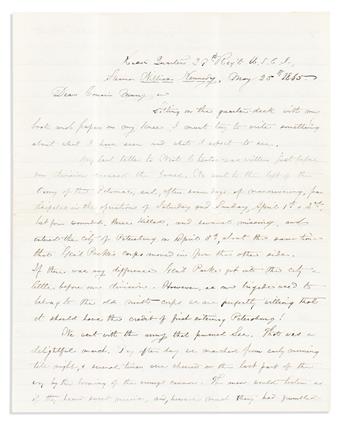 Head Quarters 29th Reg't U.S.C.I.
Steamer William Kennedy, May 28th 1865
Dear Cousin Mary,
Sitting on the quarter deck with my
book and paper on my knee, I must try to write something
about what I have seen and what I expect to see.
My last letter to West Chester was written just before
our division crossed the James. We went to the left of the
Army of the Potomac, and, after some days of manoeuvering, par-
ticipated in the operations of Saturday and Sunday, April 1st & 2nd
lost few wounded, three killed, and several missing, and
entered the city of Petersburg on April 3d, about the same time
that Gen'l Parke's corps moved in from the other side.
If there was any difference Gen'l Parke got into the city a
little before our division. However, as our brigade used to
belong to the old ninth corps we are perfectly willing that
it should have the credit of first entering Petersburg!
We went with the army that pursued Lee. That was a
delightful march. Day after day we marched from early morning
till night, & several times were cheered on the last part of the
way by the booming of the enemy's cannon. The men would listen as
if they heard sweet music, and, however much they had grumbled